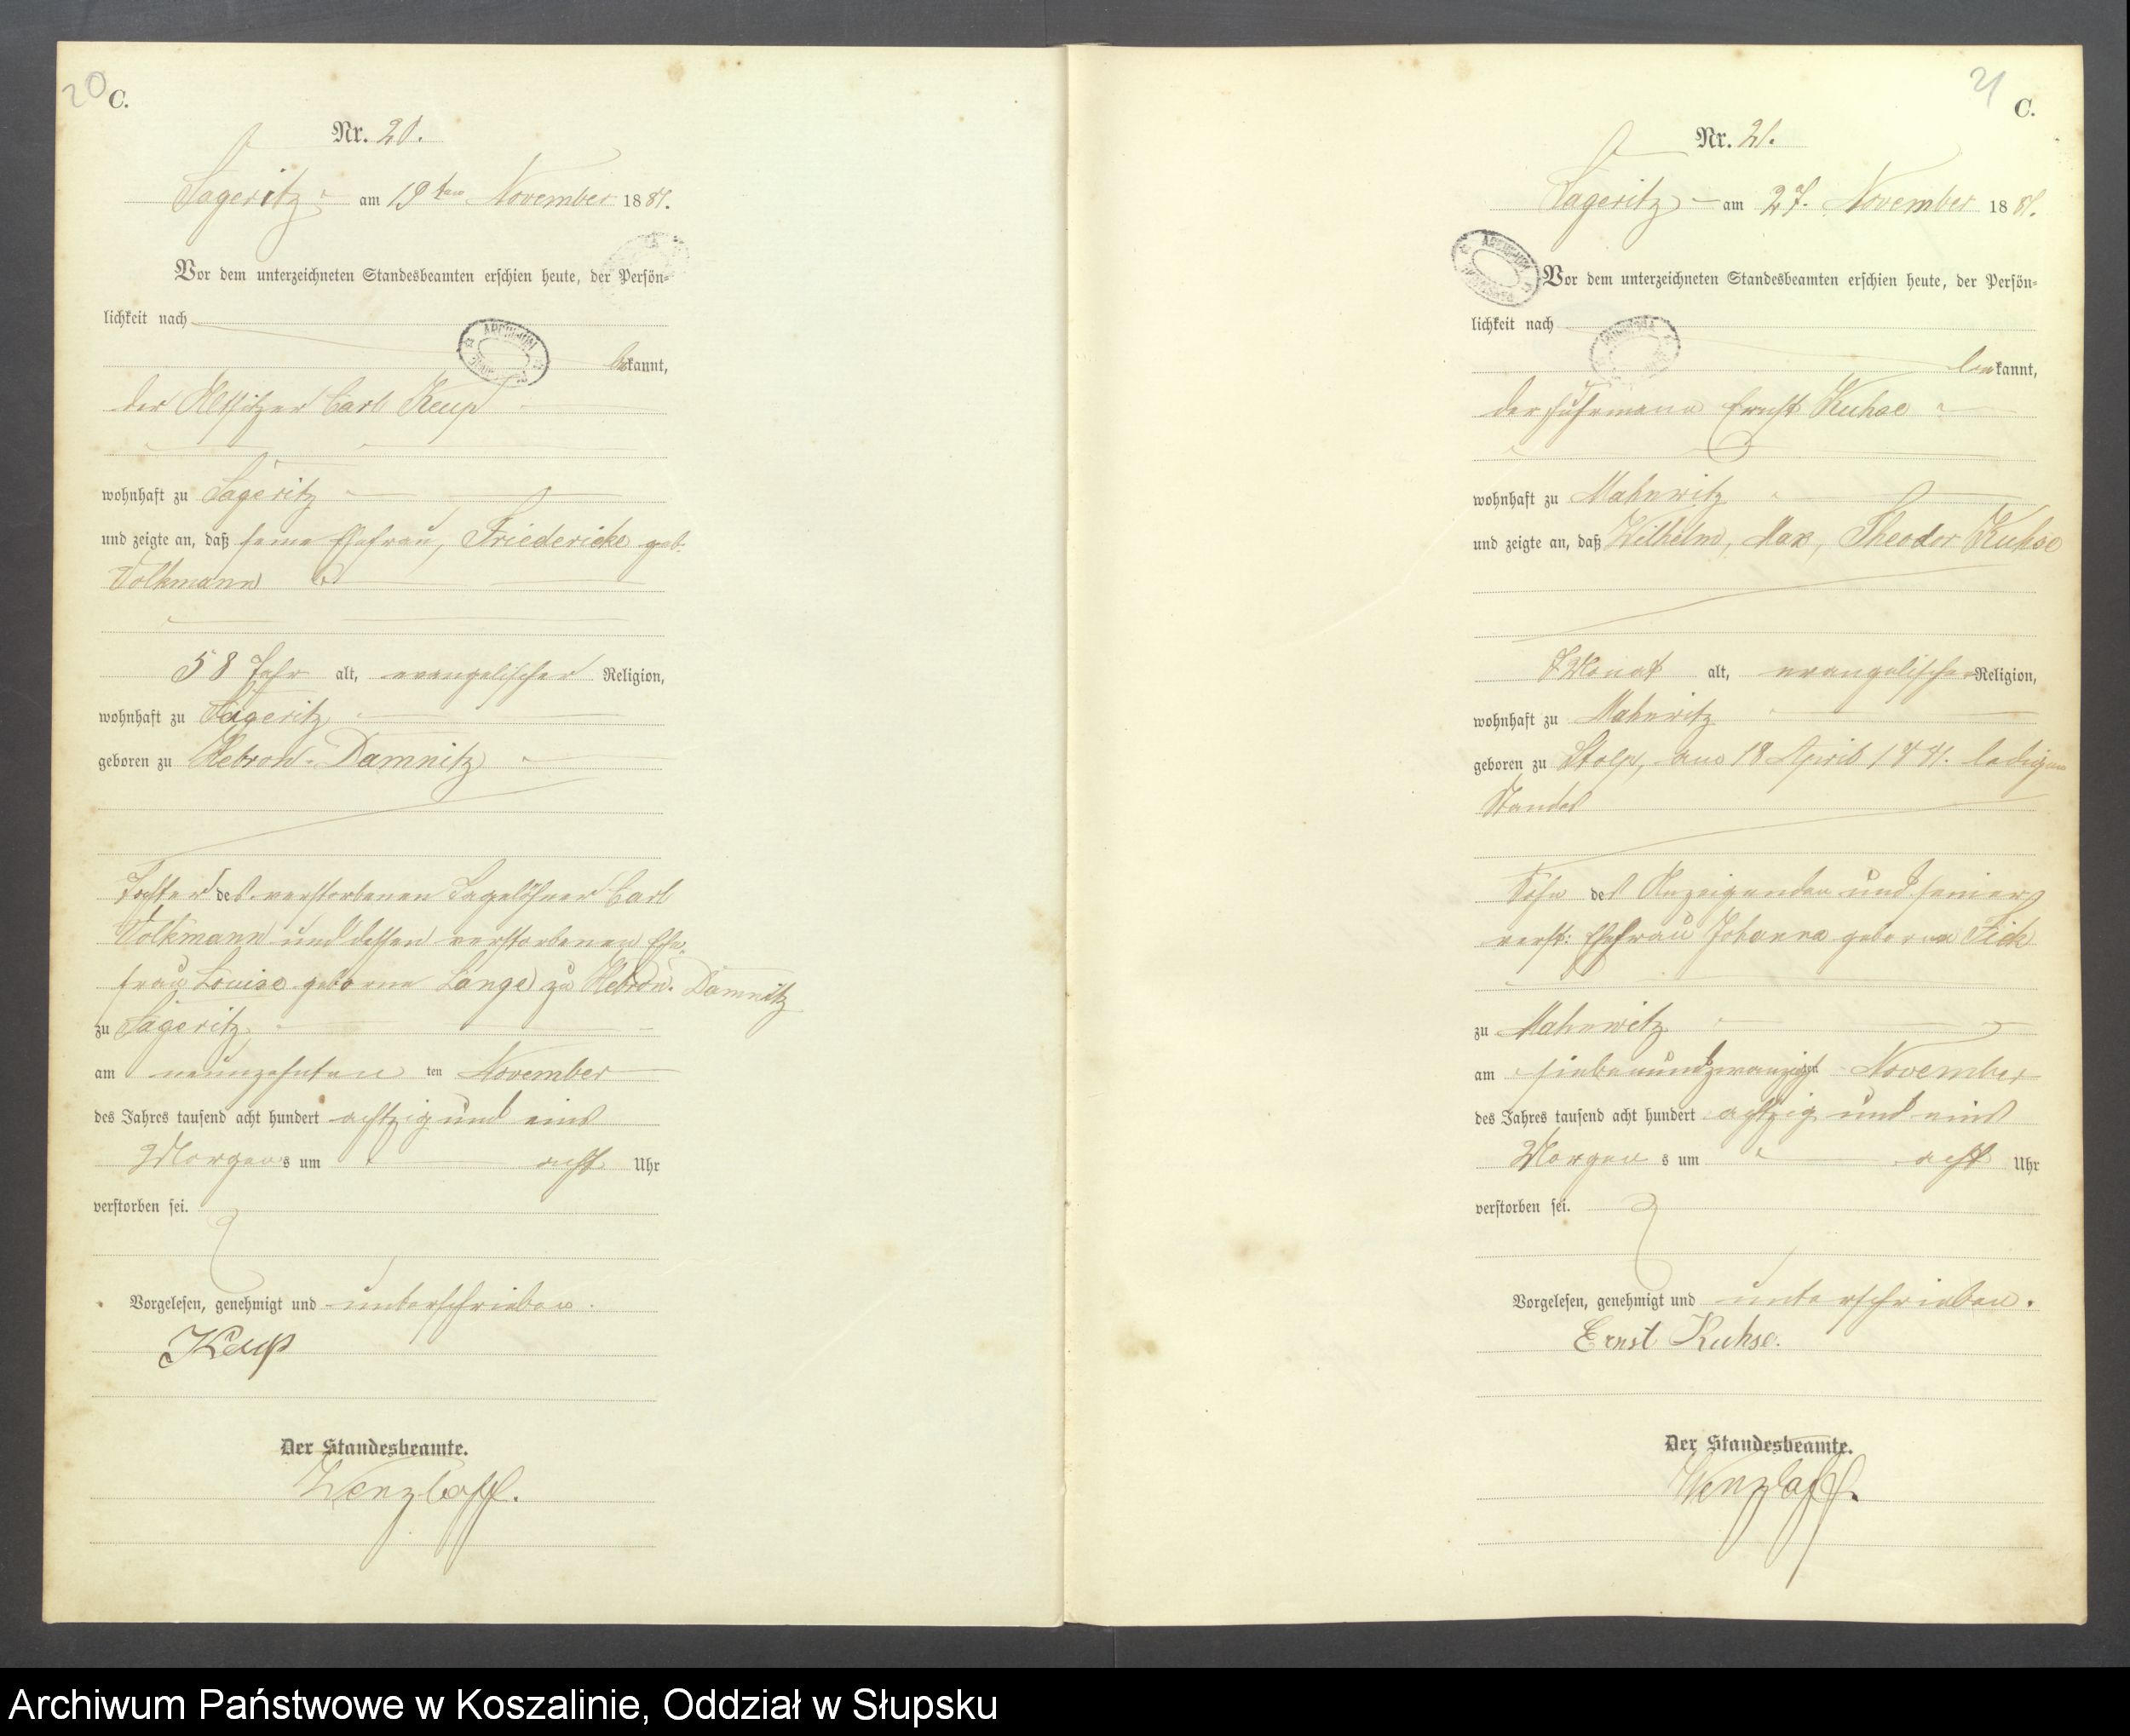 20
C.
Nr. 20.
Sageritz am 19ten November 1881.
Vor dem unterzeichneten Standesbeamten erschien heute, der Persön-
lichkeit nach
bekannt,
der Carl Keup
wohnhaft zu Sageritz
und zeigte an, daß seine Ehefrau, Friedericke geb.
Volkmann
58 Jahr alt, evangelischer Religion,
wohnhaft zu Sageritz
geboren zu Hebron-Damnitz
Tochter des verstorbenen Tagelöhner Carl
Volkmann und dessen verstorbenen Ehe-
frau Louise geborne Lange zu Hebron-Damnitz
zu Sageritz
am neunzehnten ten November
des Jahres tausend acht hundert achtzig und eins
Morgens um acht Uhr
verstorben sei.
Vorgelesen, genehmigt und unterschrieben.
Keup
Der Standesbeamte.
Wenzlaff.
21
C.
Nr. 21.
Sageritz am 27. November 1881.
Vor dem unterzeichneten Standesbeamten erschien heute, der Persön-
lichkeit nach
bekannt,
der Fuhrmann Ernst Kuhse
wohnhaft zu Mahnwitz
und zeigte an, daß Wilhelm, Max, Theodor Kuhse
7 Monat alt, evangelischer Religion,
wohnhaft zu Mahnwitz
geboren zu Stolp, am 18 April 1881. ledigen
Standes
Sohn des Anzeigenden und seiner
verst: Ehefrau Johanna geborne Fick
zu Mahnwitz
am siebenundzwanzigsten November
des Jahres tausend acht hundert achtzig und eins
Morgens um acht Uhr
verstorben sei.
Vorgelesen, genehmigt und unterschrieben.
Ernst Kuhse.
Der Standesbeamte.
Wenzlaff.
Archiwum Państwowe w Koszalinie, Oddział w Słupsku